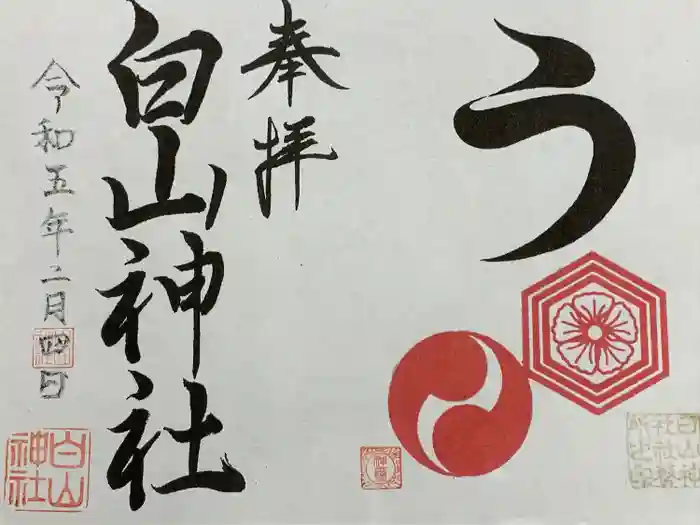 う
奉拝
白山神社
令和五年二月四日
白山
神社